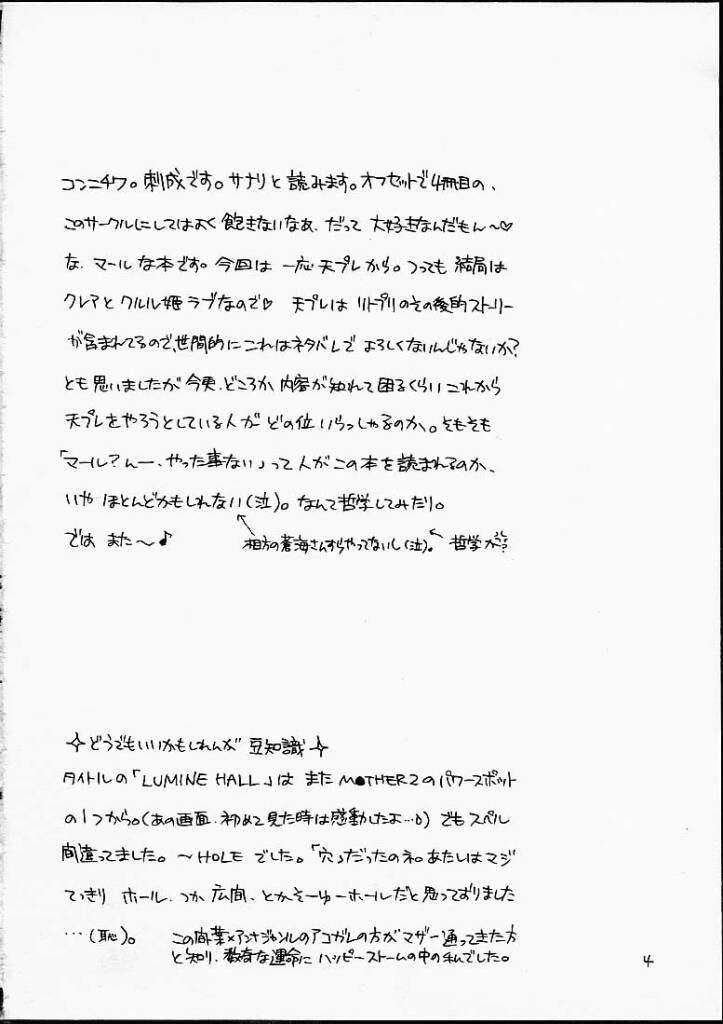 コンニチワ。刺成です。サナリと読みます。オフセットで4冊目の、
このサークルにしてはよく飽きないなあ、だって大好きなんだもん〜♡
な、マールな本です。今回は一応天プレから。つっても結局は
クレアとクルル姫ラブなので♡ 天プレはリトプリのその後的ストーリー
が含まれてるので、世間的にこれはネタバレでよろしくないんじゃないか?
とも思いましたが今更、どころか内容が知れて困るくらいこれから
天プレをやろうとしている人がどの位いらっしゃるのか。そもそも
「マール?んー、やった事ない」って人がこの本を読まれるのか、
いやほとんどかもしれない(泣)。なんて哲学してみたり。
ではまた〜♪
相方の蒼海さんすらやってないし(泣)。 哲学か?
✧どうでもいいかもしれんが豆知識✧
タイトルの「LUMINE HALL」はまたMOTHER2のパワースポット
の1つから。(あの画面、初めて見た時は感動したよ…) でもスペル
間違ってました。〜HOLEでした。「穴」だったのネ。あたしはマジ
てっきりホール、つか広間、とかそーゆーホールだと思っておりました
…(恥)。
この×アンナジャンルのアコガレの方がマザー通ってきた方
と知り、数奇な運命にハッピーストームの中の私でした。
4